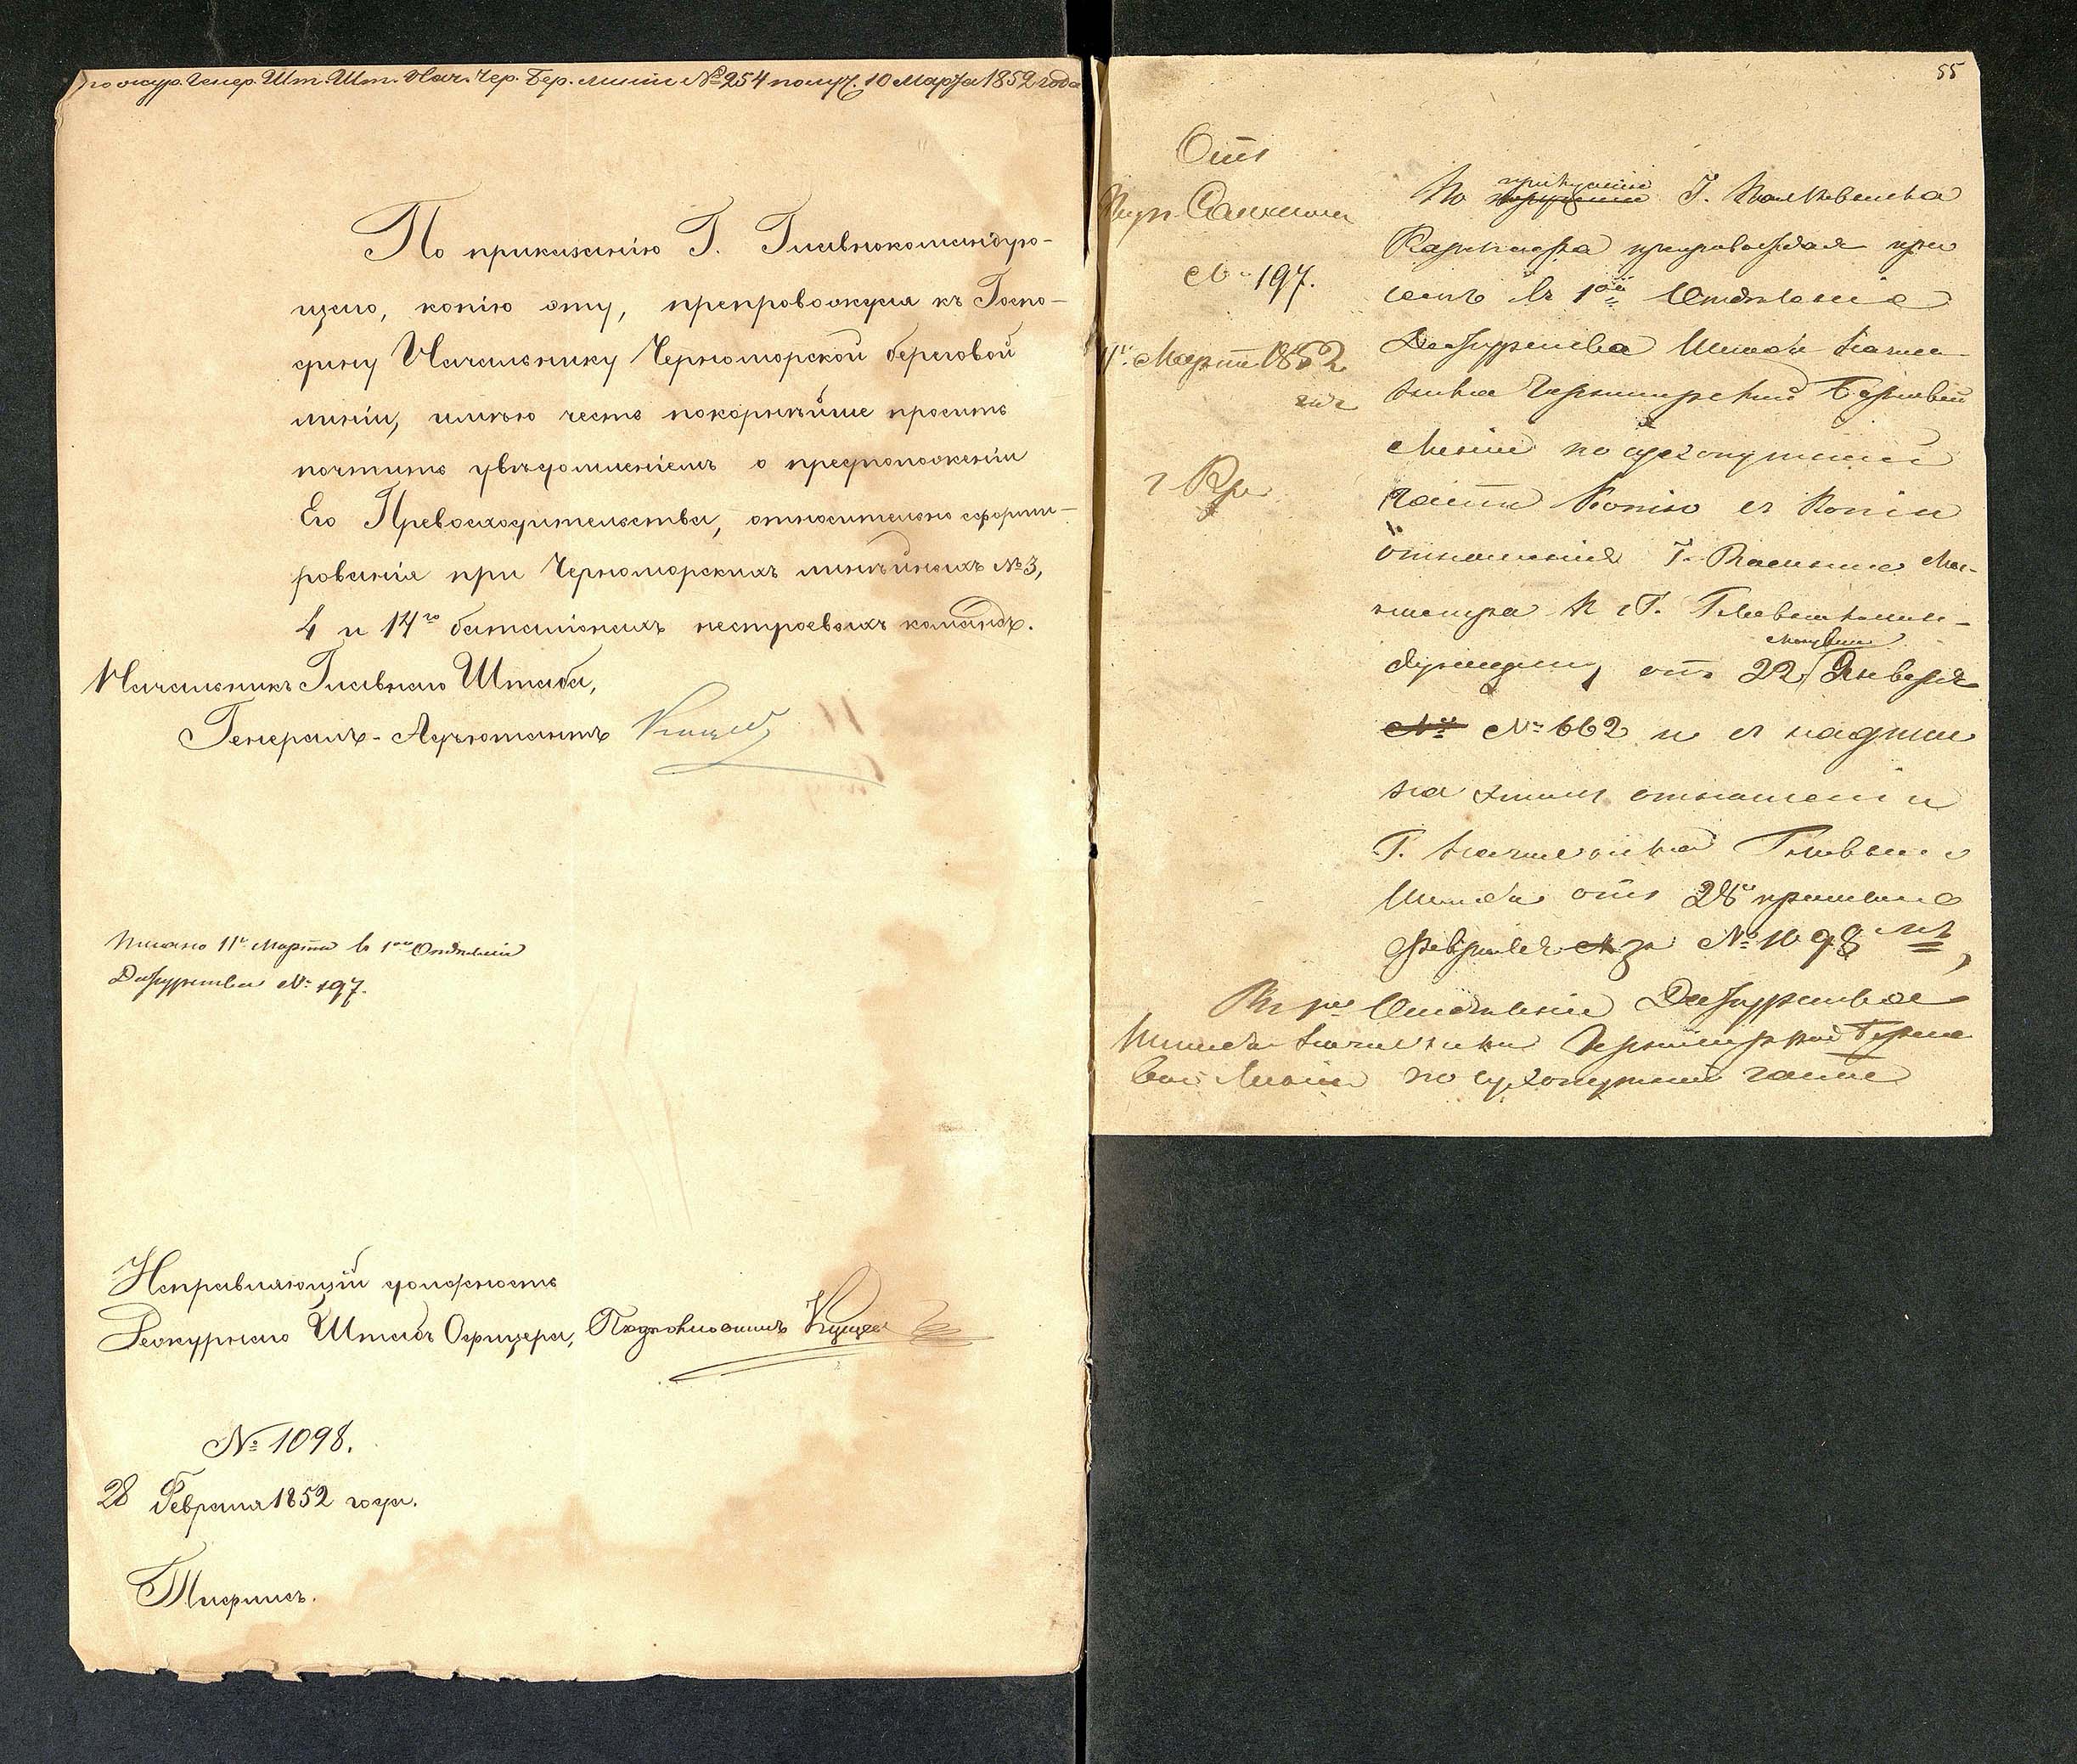 по журн. Генер. Шт. Шт. Нач. Чер. Бер. линіи № 254 получ. 10 Марта 1852 года
По приказанію Г. Главнокомандую-
щаго, копію эту, препровождая къ Госпо-
дину Начальнику Черноморской береговой
линіи, имѣю честь покорнѣйше просить
почтить увѣдомленіемъ о предположеніи
Его Превосходительства, относительно сформи-
рованія при Черноморскихъ линѣйныхъ № 3,
4 и 14го баталіонахъ нестроевыхъ командъ.
Начальникъ Главнаго Штаба,
Генералъ-Адъютантъ
Писано 11го Марта въ 1ое Отдѣленіе
Дежурства № 197.
Исправляющій должность
Дежурнаго Штабъ Офицера, Подполковникъ
№ 1098.
28 Февраля 1852 года.
Тифлисъ.
55
Отъ
№ 197.
11го Марта 1852
года
г. Кр.
По приказанію Г. Полковника
препровождая при
семъ въ 1ое Отдѣленіе
Дежурства Штаба Началь-
ника Черноморской Береговой
Линіи по сухопутной
части копію съ копіи
отношенія Г. Военнаго Ми-
нистра къ Г. Главнокоман-
дующему отъ 22 Января
№ 662 и съ надписи
на этомъ отношеніи
Г. Начальника Главнаго
Штаба отъ 28го прошлаго
Февраля за № 1098мъ,
Въ 1ое Отдѣленіе Дежурства
Штаба Начальника Черноморской Берего
вой Линіи по сухопутной части